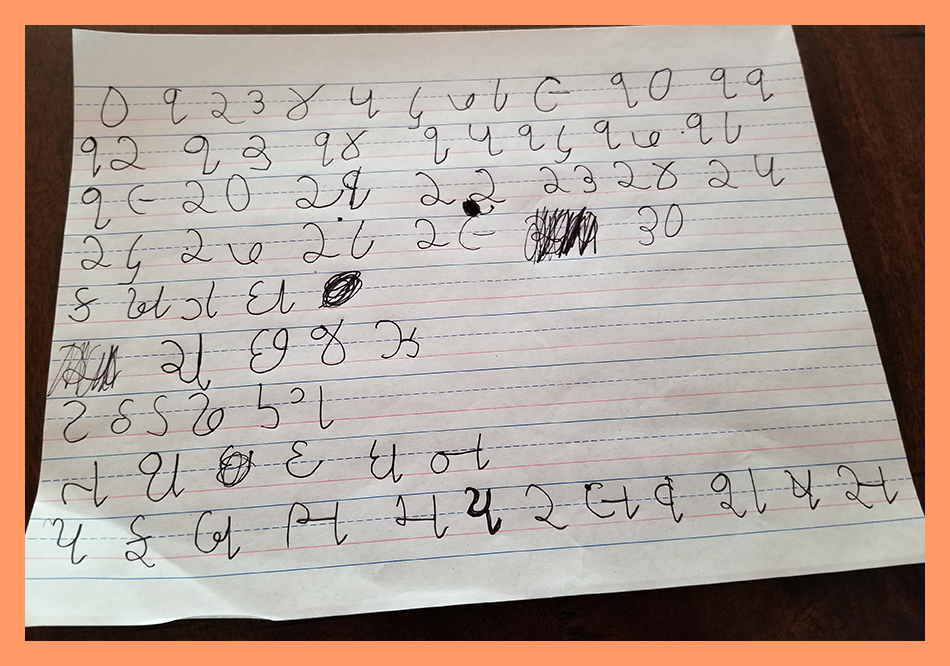 ૦ ૧ ૨ ૩ ૪ ૫ ૬ ૭ ૮ ૯ ૧૦ ૧૧
૧૨ ૧૩ ૧૪ ૧૫ ૧૬ ૧૭ ૧૮
૧૯ ૨૦ ૨૧ ૨૨ ૨૩ ૨૪ ૨૫
૨૬ ૨૭ ૨૮ ૨૯ ૩૦
ક ખ ગ ઘ
ચ છ જ ઝ
ટ ઠ ડ ઢ ણ
ત થ દ ધ ન
પ ફ બ ભ મ ય ર લ વ શ ષ સ